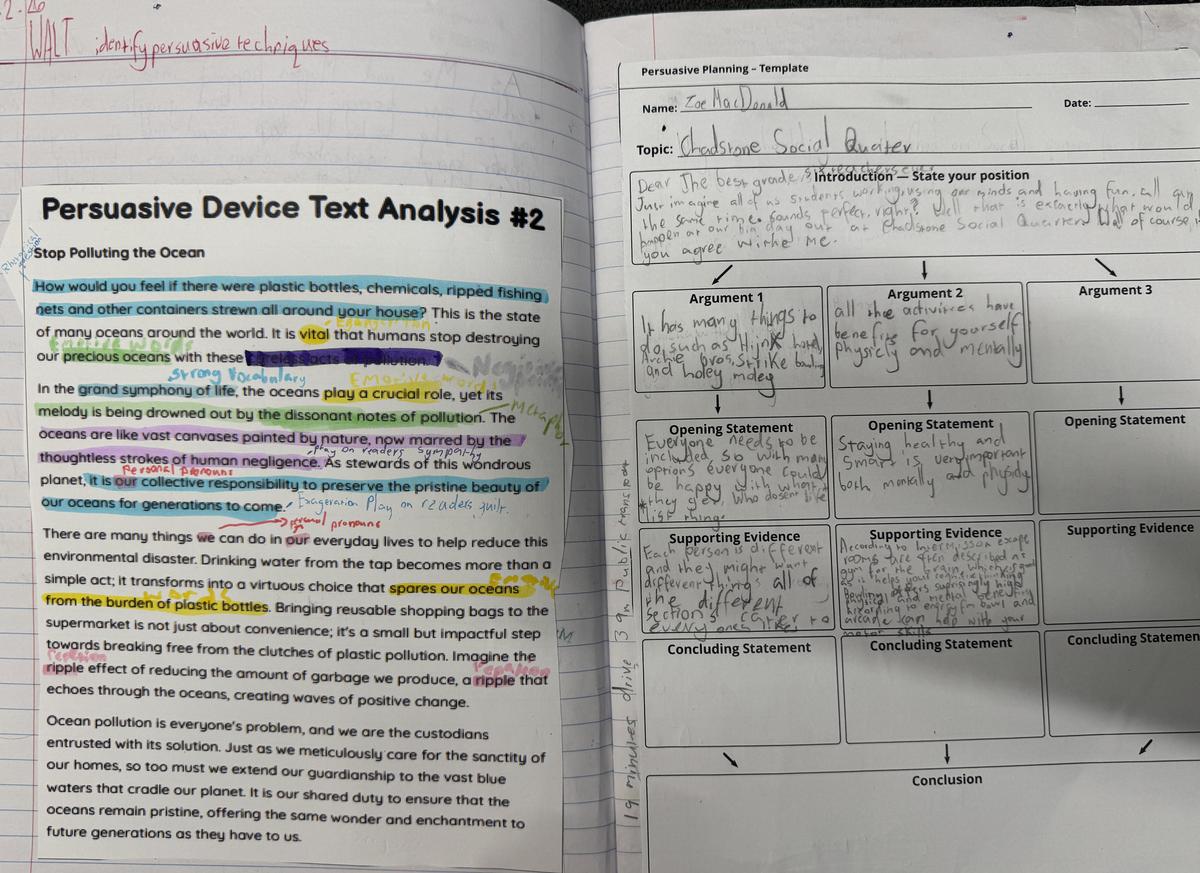 WALT identify persuasive techniques
Persuasive Device Text Analysis #2
Stop Polluting the Ocean
How would you feel if there were plastic bottles, chemicals, ripped fishing
nets and other containers strewn all around your house? This is the state
of many oceans around the world. It is vital that humans stop destroying
our precious oceans with these careless acts of pollution.
strong Vocabulary
In the grand symphony of life, the oceans play a crucial role, yet its
melody is being drowned out by the dissonant notes of pollution. The
oceans are like vast canvases painted by nature, now marred by the
Play on readers sympathy
thoughtless strokes of human negligence. As stewards of this wondrous
personal pronouns
planet, it is our collective responsibility to preserve the pristine beauty of
our oceans for generations to come. Exageration Play on readers guilt.
personal pronouns
There are many things we can do in our everyday lives to help reduce this
environmental disaster. Drinking water from the tap becomes more than a
simple act; it transforms into a virtuous choice that spares our oceans
from the burden of plastic bottles. Bringing reusable shopping bags to the
supermarket is not just about convenience; it's a small but impactful step
towards breaking free from the clutches of plastic pollution. Imagine the
ripple effect of reducing the amount of garbage we produce, a ripple that
echoes through the oceans, creating waves of positive change.
Ocean pollution is everyone's problem, and we are the custodians
entrusted with its solution. Just as we meticulously care for the sanctity of
our homes, so too must we extend our guardianship to the vast blue
waters that cradle our planet. It is our shared duty to ensure that the
oceans remain pristine, offering the same wonder and enchantment to
future generations as they have to us.
Persuasive Planning – Template
Name: Zoe MacDonald
Date:
Topic: Chadstone Social Quarter
Introduction — State your position
Dear The best grade six teachers ever
Just imagine all of us students working, using our minds and having fun, all
the same time. Sounds perfect, right? Well that is exactly what would
happen at our big day out at Chadstone Social Quarter. Well of course,
you agree withe me.
Argument 1
It has many things to
do, such as Hijnx hotel
Archie bros, Strike bowling
and holey moley
Argument 2
all the activities have
benefits for yourself
physicly and mentally
Argument 3
Opening Statement
Everyone needs to be
included, so with many
options everyone could
be happy with what
they get, Who dosent like
Opening Statement
Staying healthy and
smart is very important
both mentally and physicly
Opening Statement
Supporting Evidence
Each person is different
and they might want
different things all of
the different
sections cater to
every ones likes
Supporting Evidence
According to Intermission escape
rooms are often described as
gym for the brain, which is
as it helps your
Bowling offers suprisingly high
physical and mental benefits
According to energy fm bowl and
arcade can help with your
motor skills
Supporting Evidence
19 minutes drive 39m public transport
Concluding Statement
Concluding Statement
Concluding Statemen
Conclusion